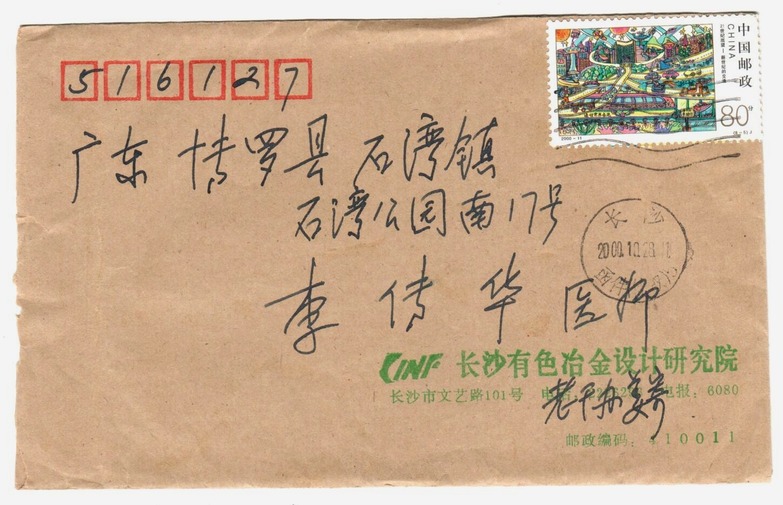 516127
中国邮政
CHINA
80分
2000-11
广东 博罗县 石湾镇
石湾公园南17号
长沙
2000.10.28.
李传华 医师
CINF 长沙有色冶金设计研究院
长沙市文艺路101号 电报：6080
老干办
邮政编码：410011